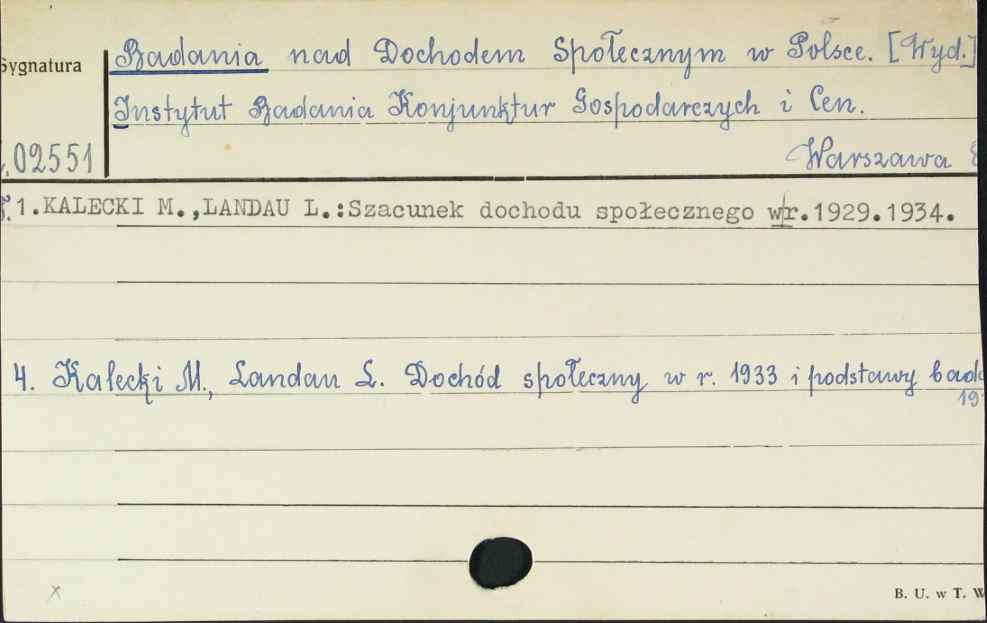 Badania nad Dochodem Społecznym w Polsce. [Wyd.]
Sygnatura
Instytut Badania Konjunktur Gospodarczych i Cen.
02551
Warszawa
1.KALECKI M.,LANDAU L.:Szacunek dochodu społecznego w r.1929.1934.
4. Kalecki M., Landau L. Dochód społeczny w r. 1933 i podstawy bad
19
x
B. U. w T. W